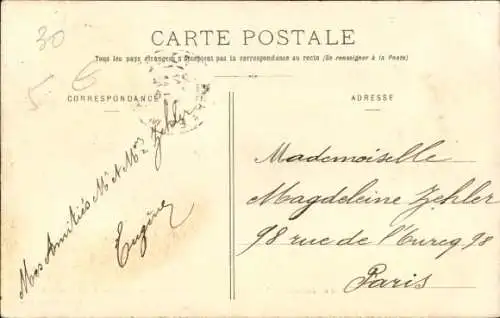 30
5 6
CARTE POSTALE
Tous les pays étrangers n'acceptent pas la correspondance au recto (Se renseigner à la Poste)
CORRESPONDANCE
Mes Amitiés Mr & Mme Zehler
Eugène
ADRESSE
Mademoiselle
Magdeleine Zehler
98 rue de l'Ourcq 98
Paris